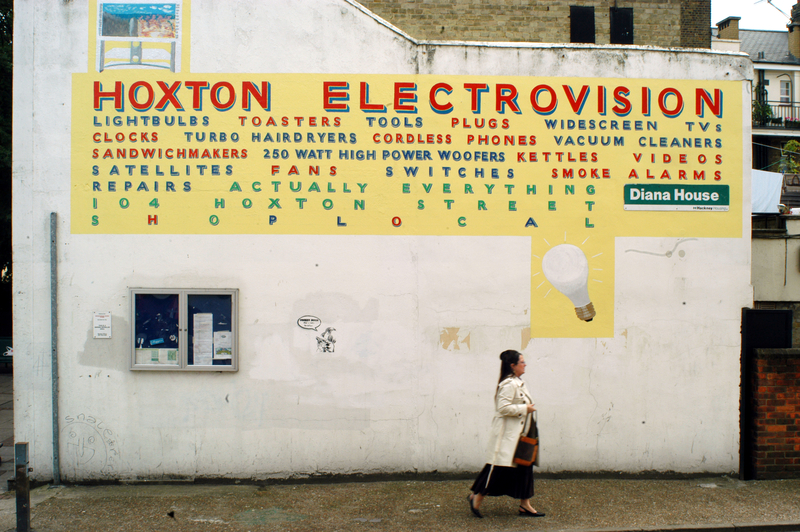 HOXTON ELECTROVISION
LIGHTBULBS TOASTERS TOOLS PLUGS WIDESCREEN TVs
CLOCKS TURBO HAIRDRYERS CORDLESS PHONES VACUUM CLEANERS
SANDWICHMAKERS 250 WATT HIGH POWER WOOFERS KETTLES VIDEOS
SATELLITES FANS SWITCHES SMOKE ALARMS
REPAIRS ACTUALLY EVERYTHING
104 HOXTON STREET
SHOP LOCAL
Diana House